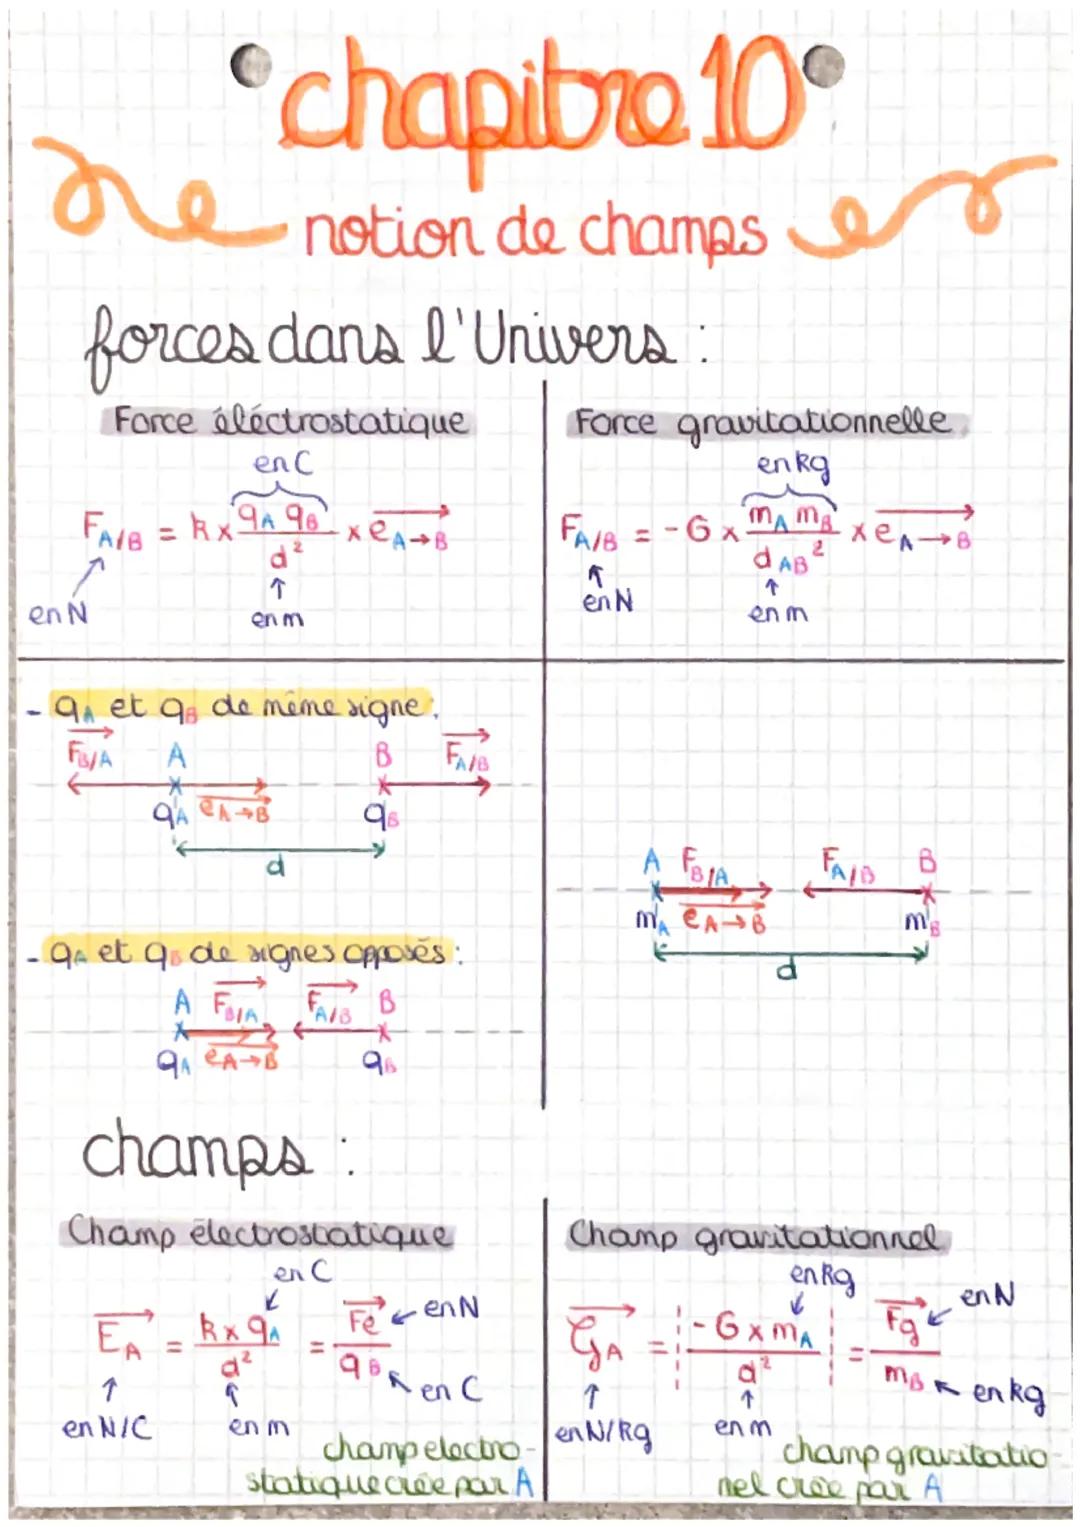 chapitre 10
notion de champs
forces dans l'Univers :
Force éléctrostatique
en C
F A/B = k x qA qB / d² x e A→B
en N
en m
Force gravitationnelle
en kg
F A/B = - G x mA mB / d AB² x e A→B
en N
en m
- qA et qB de même signe :
F B/A A B F A/B
qA e A→B qB
d
- qA et qB de signes opposés :
A F B/A F A/B B
qA e A→B qB
A F B/A F A/B B
mA e A→B mB
d
champs :
Champ électrostatique
en C
E A = k x qA / d² = Fe / qB
en N
en C
en N/C
en m
champ electro-
statique crée par A
Champ gravitationnel
en kg
G A = - G x mA / d² = Fg / mB
en N
en kg
en N/kg
en m
champ gravitatio-
nel crée par A